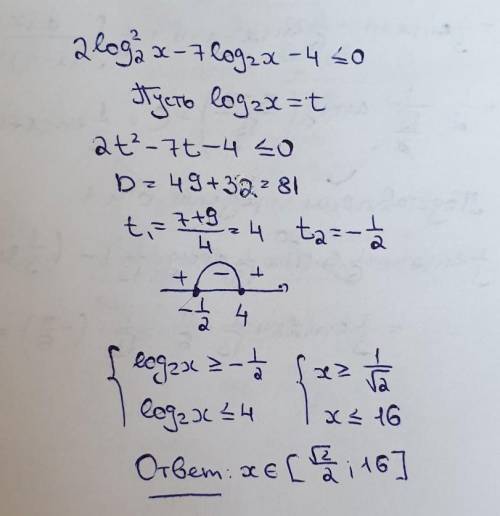 2log₂²x - 7log₂x - 4 ≤ 0
Пусть log₂x = t
2t² - 7t - 4 ≤ 0
D = 49 + 32 = 81
t₁ = (7+9)/4 = 4 t₂ = -1/2
+ - +
-1/2 4
{ log₂x ≥ -1/2 { x ≥ 1/√2
log₂x ≤ 4 x ≤ 16
Ответ: x ∈ [√2/2; 16]